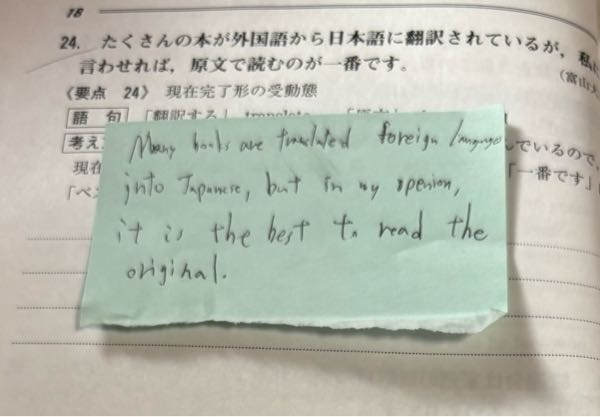 18
24. たくさんの本が外国語から日本語に翻訳されているが, 私に
言わせれば, 原文で読むのが一番です。
(富山大
《要点 24》 現在完了形の受動態
語句 「翻訳する」 translate
考え
んでいるので,
現在
「一番です」
「ベス
Many books are translated foreign languages
into Japanese, but in my openion,
it is the best to read the
original.